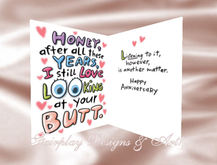 HONEY,
after all these
YEARS,
I still LOVE
LOOKING
at your
BUTT.
Listening to it,
however,
is another matter.
Happy
Anniversary
Fairplay Designs & Arts